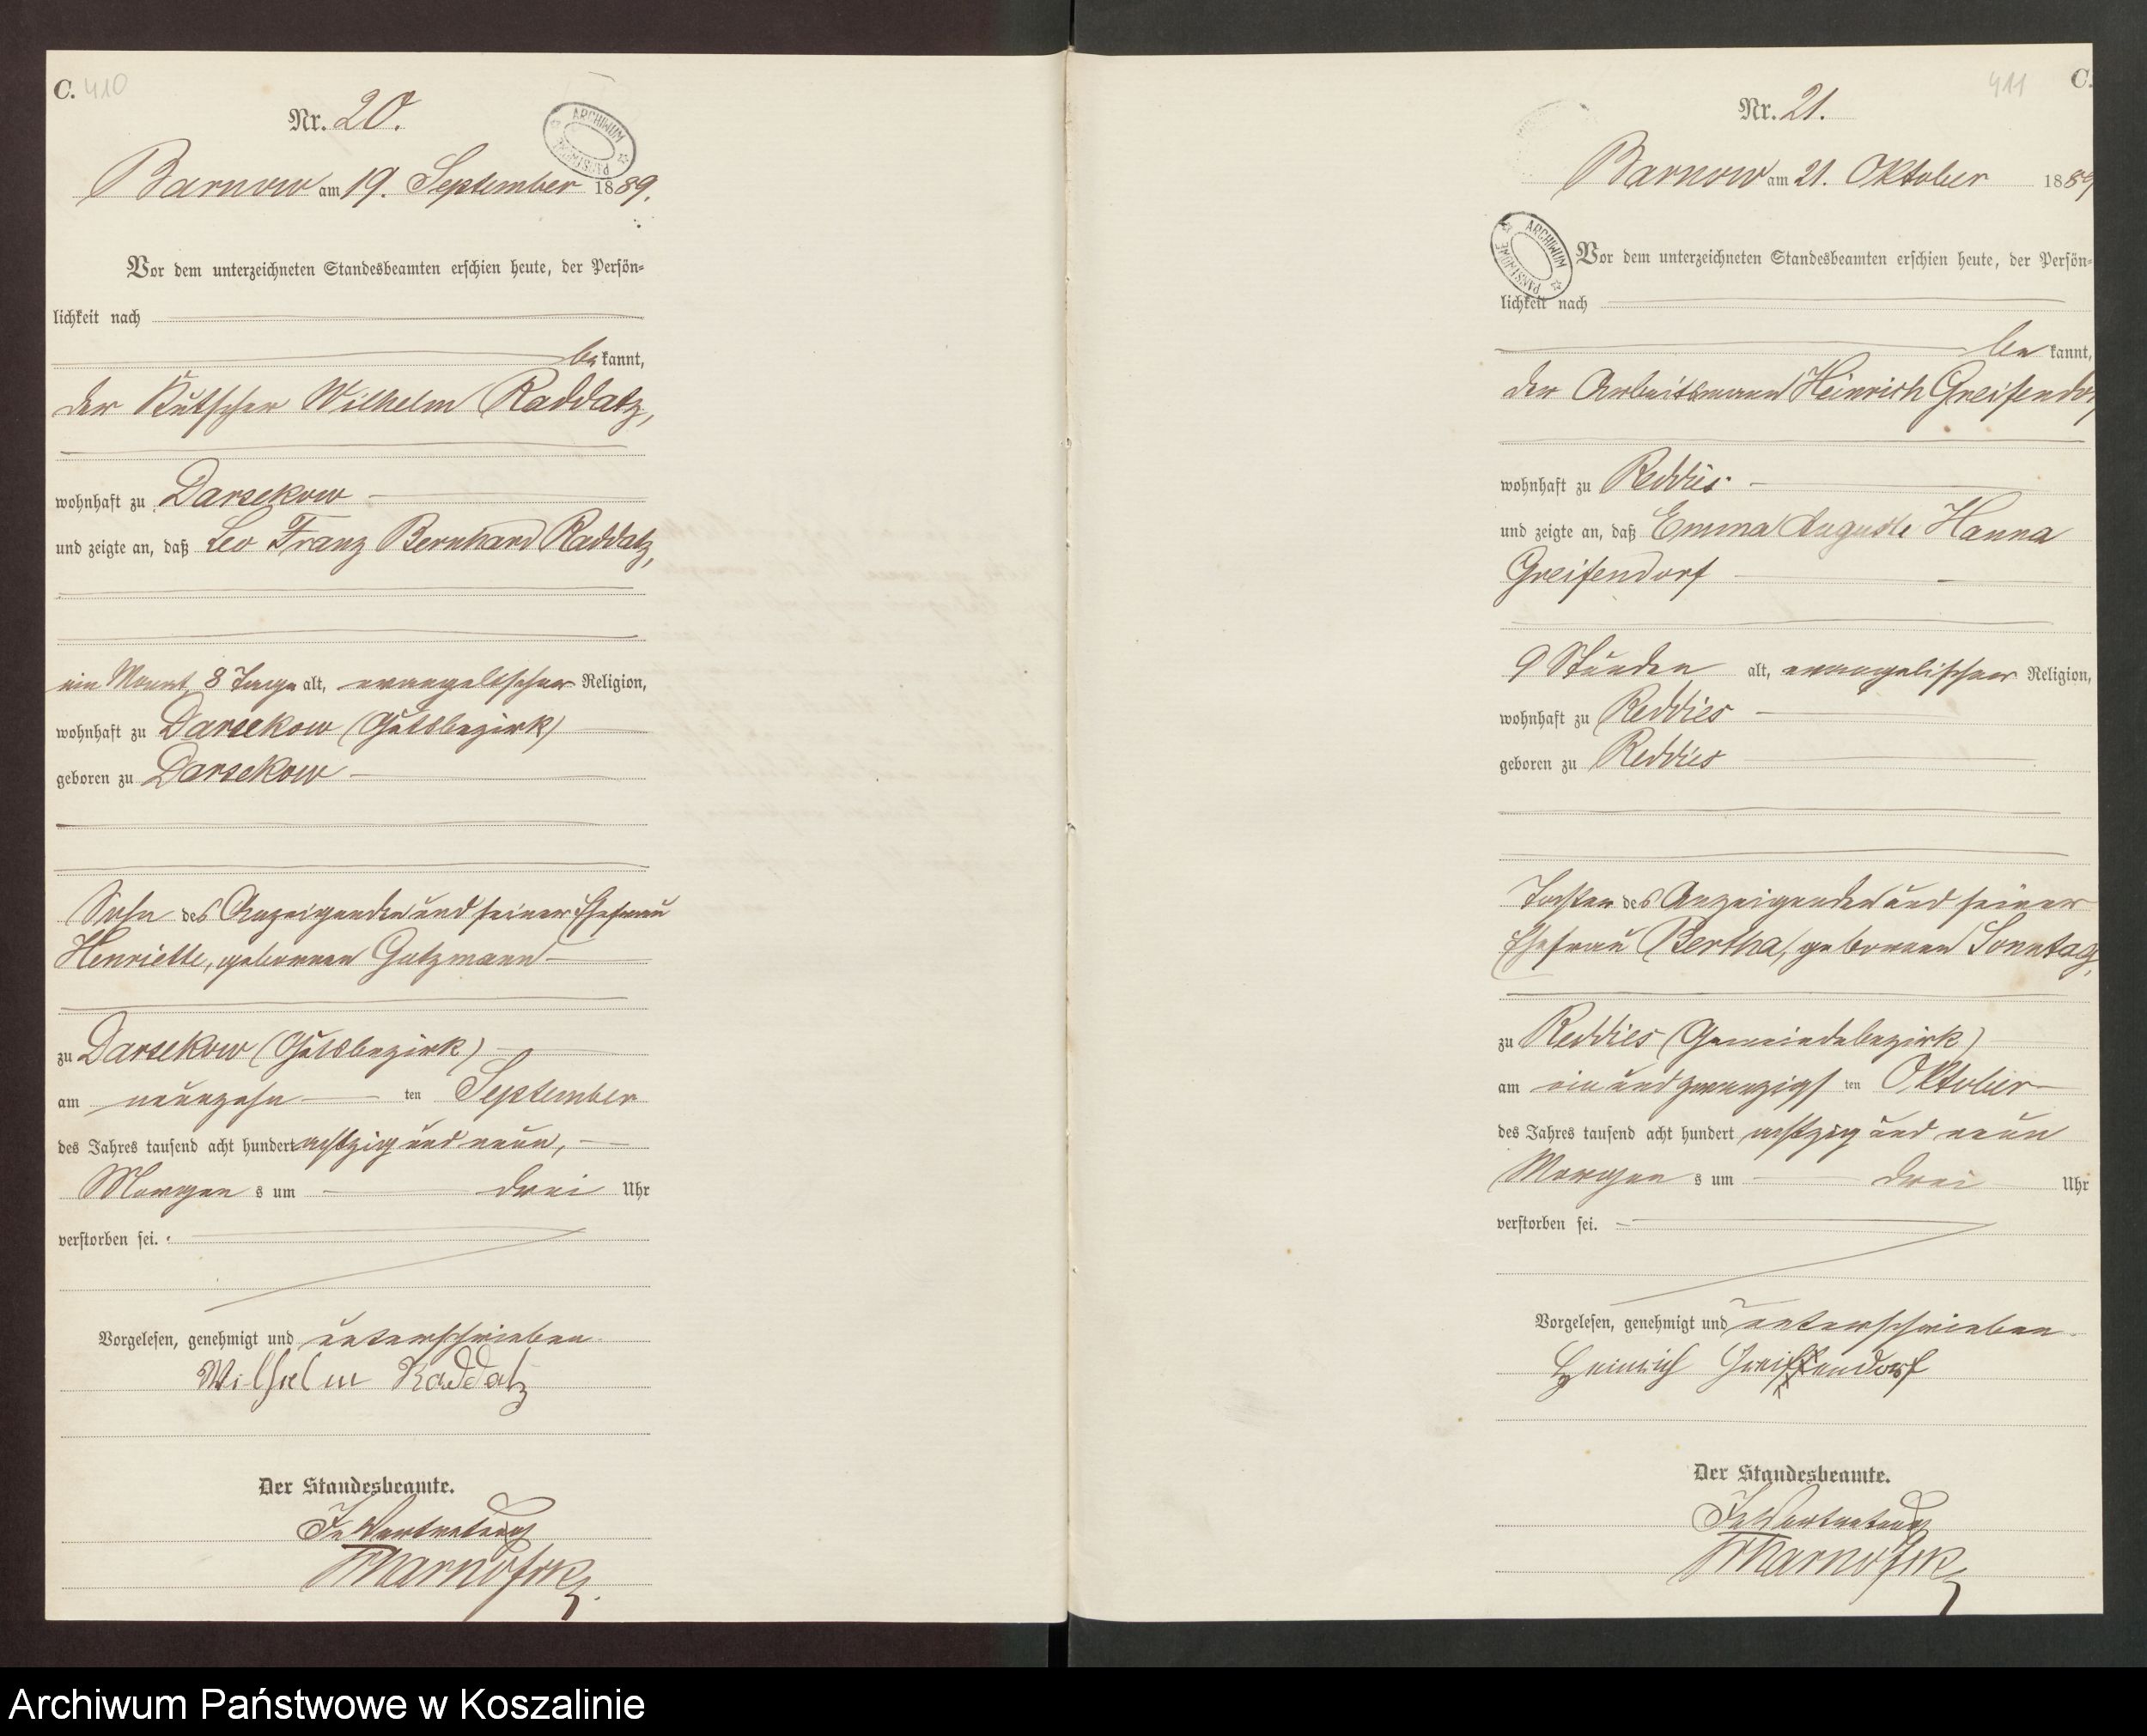 C. 410
Nr. 20.
ARCHIWUM PAŃSTWOWE
Barnow am 19. September 1889.
Vor dem unterzeichneten Standesbeamten erschien heute, der Persön=
lichkeit nach
be kannt,
der Kutscher Wilhelm Raddatz,
wohnhaft zu Darsekow
und zeigte an, daß Leo Franz Bernhard Raddatz,
ein Monat 8 Tage alt, evangelischer Religion,
wohnhaft zu Darsekow (Gutsbezirk)
geboren zu Darsekow
Sohn des Anzeigenden und seiner Ehefrau
Henriette, geborenen Gutzmann
zu Darsekow (Gutsbezirk)
am neunzehn ten September
des Jahres tausend acht hundert achtzig und neun,
Morgen s um drei Uhr
verstorben sei.
Vorgelesen, genehmigt und unterschrieben.
Wilhelm Raddatz
Der Standesbeamte.
In Vertretung
411 C.
Nr. 21.
Barnow am 21. Oktober 1889
ARCHIWUM PAŃSTWOWE
Vor dem unterzeichneten Standesbeamten erschien heute, der Persön=
lichkeit nach
be kannt,
der Arbeitsmann Heinrich Greifendorf
wohnhaft zu Reddies
und zeigte an, daß Emma Auguste Hanna
Greifendorf
9 Stunden alt, evangelischer Religion,
wohnhaft zu Reddies
geboren zu Reddies
Tochter des Anzeigenden und seiner
Ehefrau Bertha, geborenen Sonntag,
zu Reddies (Gemeindebezirk)
am ein und zwanzigs ten Oktober
des Jahres tausend acht hundert achtzig und neun
Morgen s um drei Uhr
verstorben sei.
Vorgelesen, genehmigt und unterschrieben.
Heinrich Greiffendorf
Der Standesbeamte.
In Vertretung
Archiwum Państwowe w Koszalinie